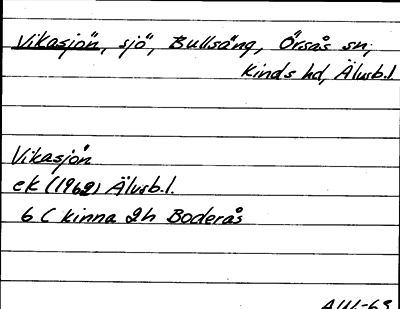 Vikasjön, sjö, Bullsäng, Örsås sn,
Kinds hd, Älvsb.l.
Vikasjön
ek (1962) Älvsb.l.
6 C Kinna 2h Boderås